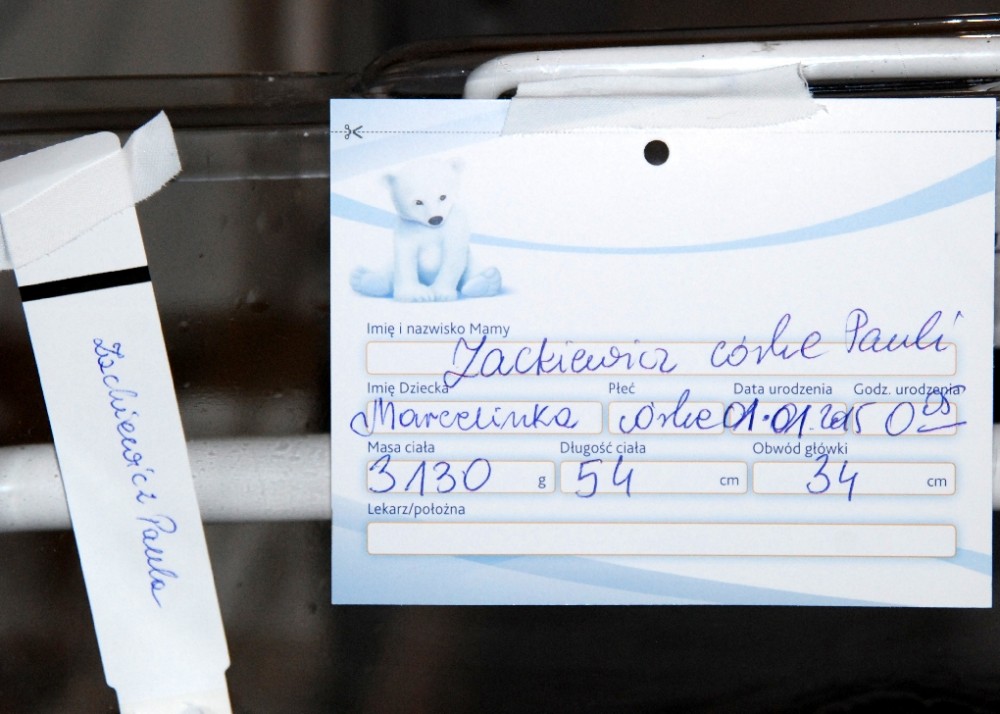 Imię i nazwisko Mamy
Zackiewicz córke Pauli
Imię Dziecka Płeć Data urodzenia Godz. urodzenia
Marcelinka córke 01.01.2015 0 05
Masa ciała Długość ciała Obwód główki
3130 g 54 cm 34 cm
Lekarz/położna
Zackiewicz Paula